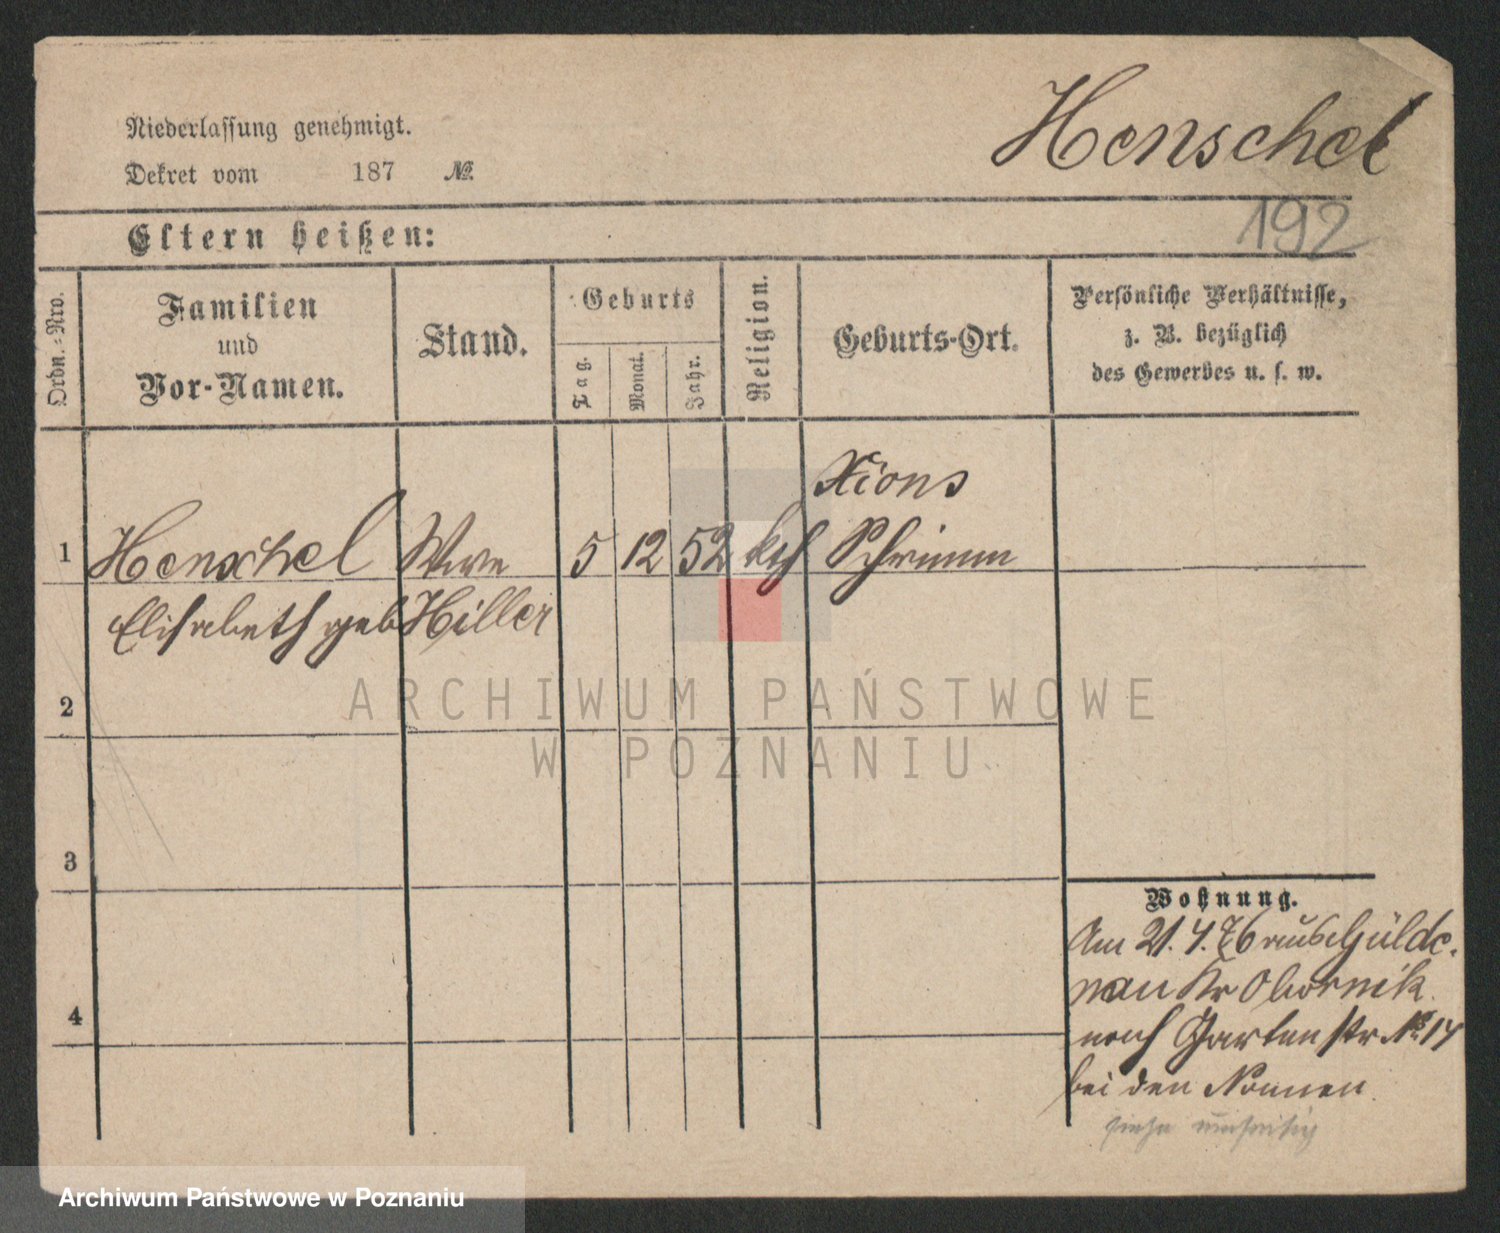 Henschel
Niederlassung genehmigt.
Dekret vom 187 №
192
Eltern heißen:
Ordn.-Nro.
Familien
und
Vor-Namen.
Stand.
Geburts
Tag.
Monat.
Jahr.
Religion.
Geburts-Ort.
Persönliche Verhältnisse,
z. B. bezüglich
des Gewerbes u. s. w.
Xions
1 Henschel Wwe 5 12 52 kth Schrimm
Elisabeth geb Hiller
2
3
4
Wohnung.
Am 21. 4. 76 aus Gülde.
nau Kr Obornik
nach Gartenstr. № 14
bei den Nonnen
siehe umseitig
ARCHIWUM PAŃSTWOWE
W POZNANIU
Archiwum Państwowe w Poznaniu